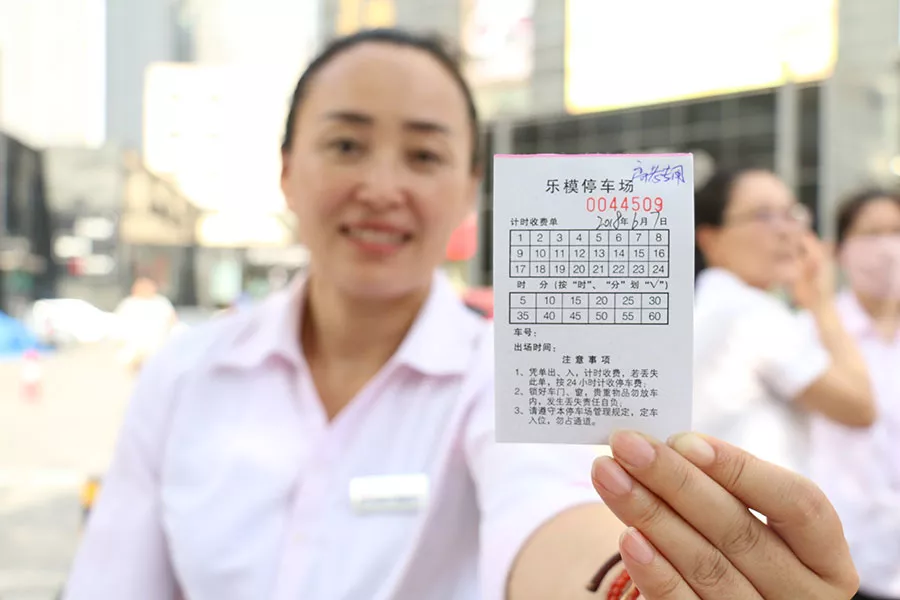 高考专用
乐模停车场
0044509
计时收费单 2018年6月7日
1 2 3 4 5 6 7 8
9 10 11 12 13 14 15 16
17 18 19 20 21 22 23 24
时 分(按“时”、“分”划“√”)
5 10 15 20 25 30
35 40 45 50 55 60
车号：
出场时间：
注意事项
1、凭单出、入，计时收费，若丢失
此单，按24小时计收停车费；
2、锁好车门、窗，贵重物品勿放车
内，发生丢失责任自负；
3、请遵守本停车场管理规定，定车
入位，勿占通道。